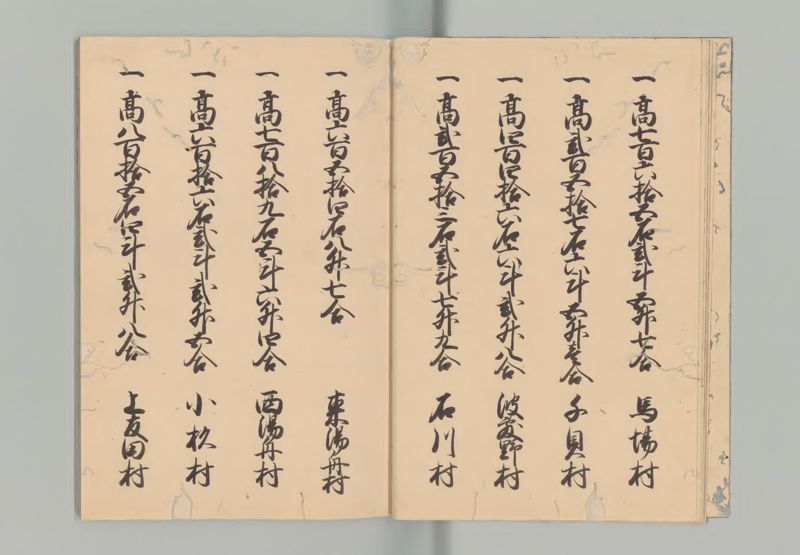 一高七百六拾五石弐斗五升七合 馬場村
一高弐百五拾七石六斗五升壱合 千貝村
一高四百四拾六石六斗弐升八合 波敷野村
一高弐百五拾三石弐斗七升九合 石川村
一高六百五拾四石八升七合 東湯舟村
一高七百八拾九石五斗六升四合 西湯舟村
一高六百拾六石弐斗弐升五合 小杉村
一高八百拾五石四斗弐升八合 上友田村